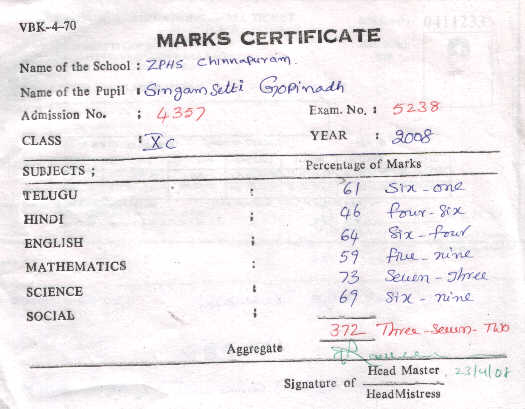 VBK-4-70
MARKS CERTIFICATE
Name of the School : ZPHS Chinnapuram.
Name of the Pupil : Singamsetti Gopinadh
Admission No. : 4357 Exam. No. : 5238
CLASS : X C YEAR : 2008
SUBJECTS ; Percentage of Marks
TELUGU : 61 Six - one
HINDI ; 46 four - Six
ENGLISH ; 64 Six - four
MATHEMATICS : 59 five - nine
SCIENCE ; 73 Seven - Three
SOCIAL ; 69 Six - nine
372 Three - Seven - Two
Aggregate
Signature of Head Master 23/4/08
HeadMistress